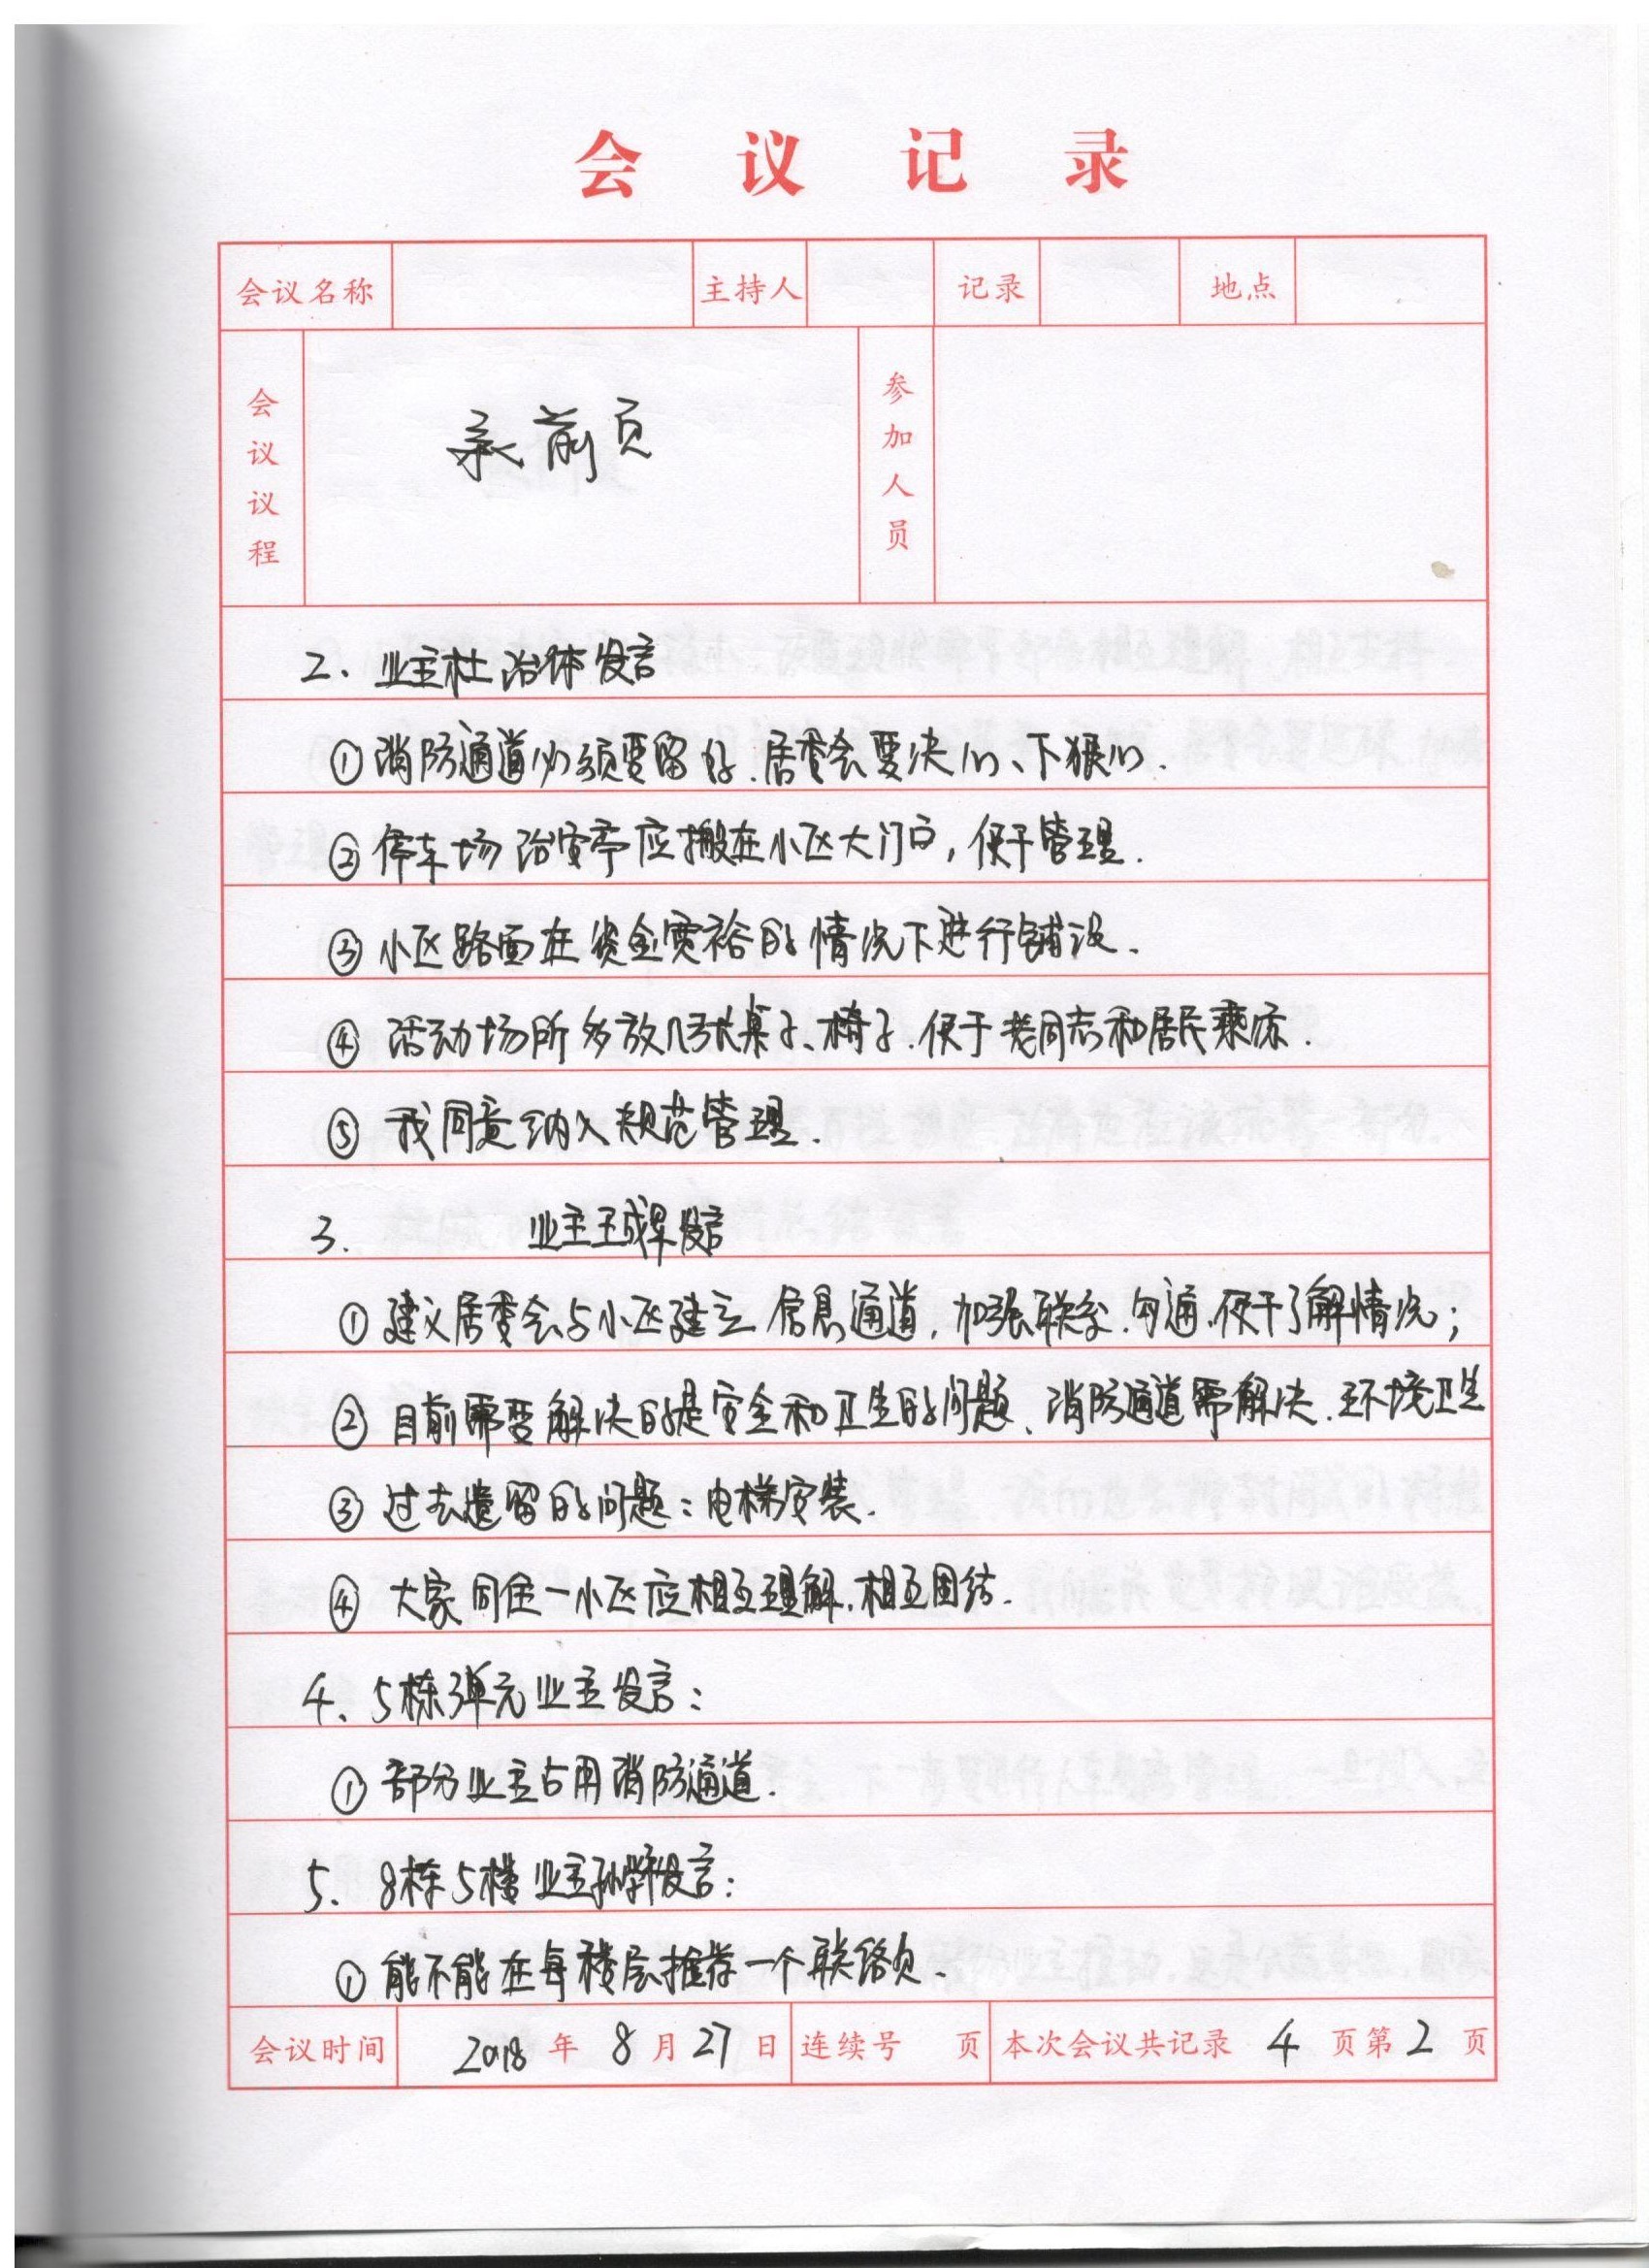 会议记录
会议名称 主持人 记录 地点
会议议程 承前页 参加人员
2、业主杜治体发言
①消防通道必须要留好.居委会要决心、下狠心.
②停车场治安亭应搬在小区大门口,便于管理.
③小区路面在资金宽裕的情况下进行铺设.
④活动场所多放几张桌子、椅子.便于老同志和居民乘凉.
⑤我同意纳入规范管理.
3. 业主王成早发言
①建议居委会与小区建立信息通道,加强联系.勾通.便于了解情况;
②目前需要解决的是安全和卫生的问题、消防通道需解决.环境卫生
③过去遗留的问题:电梯安装.
④大家同住一小区应相互理解.相互团结.
4、5栋3单元业主发言:
①部分业主占用消防通道.
5、8栋5楼业主孙发言:
①能不能在每楼层推荐一个联络员.
会议时间 2018年8月27日 连续号 页 本次会议共记录4页第2页